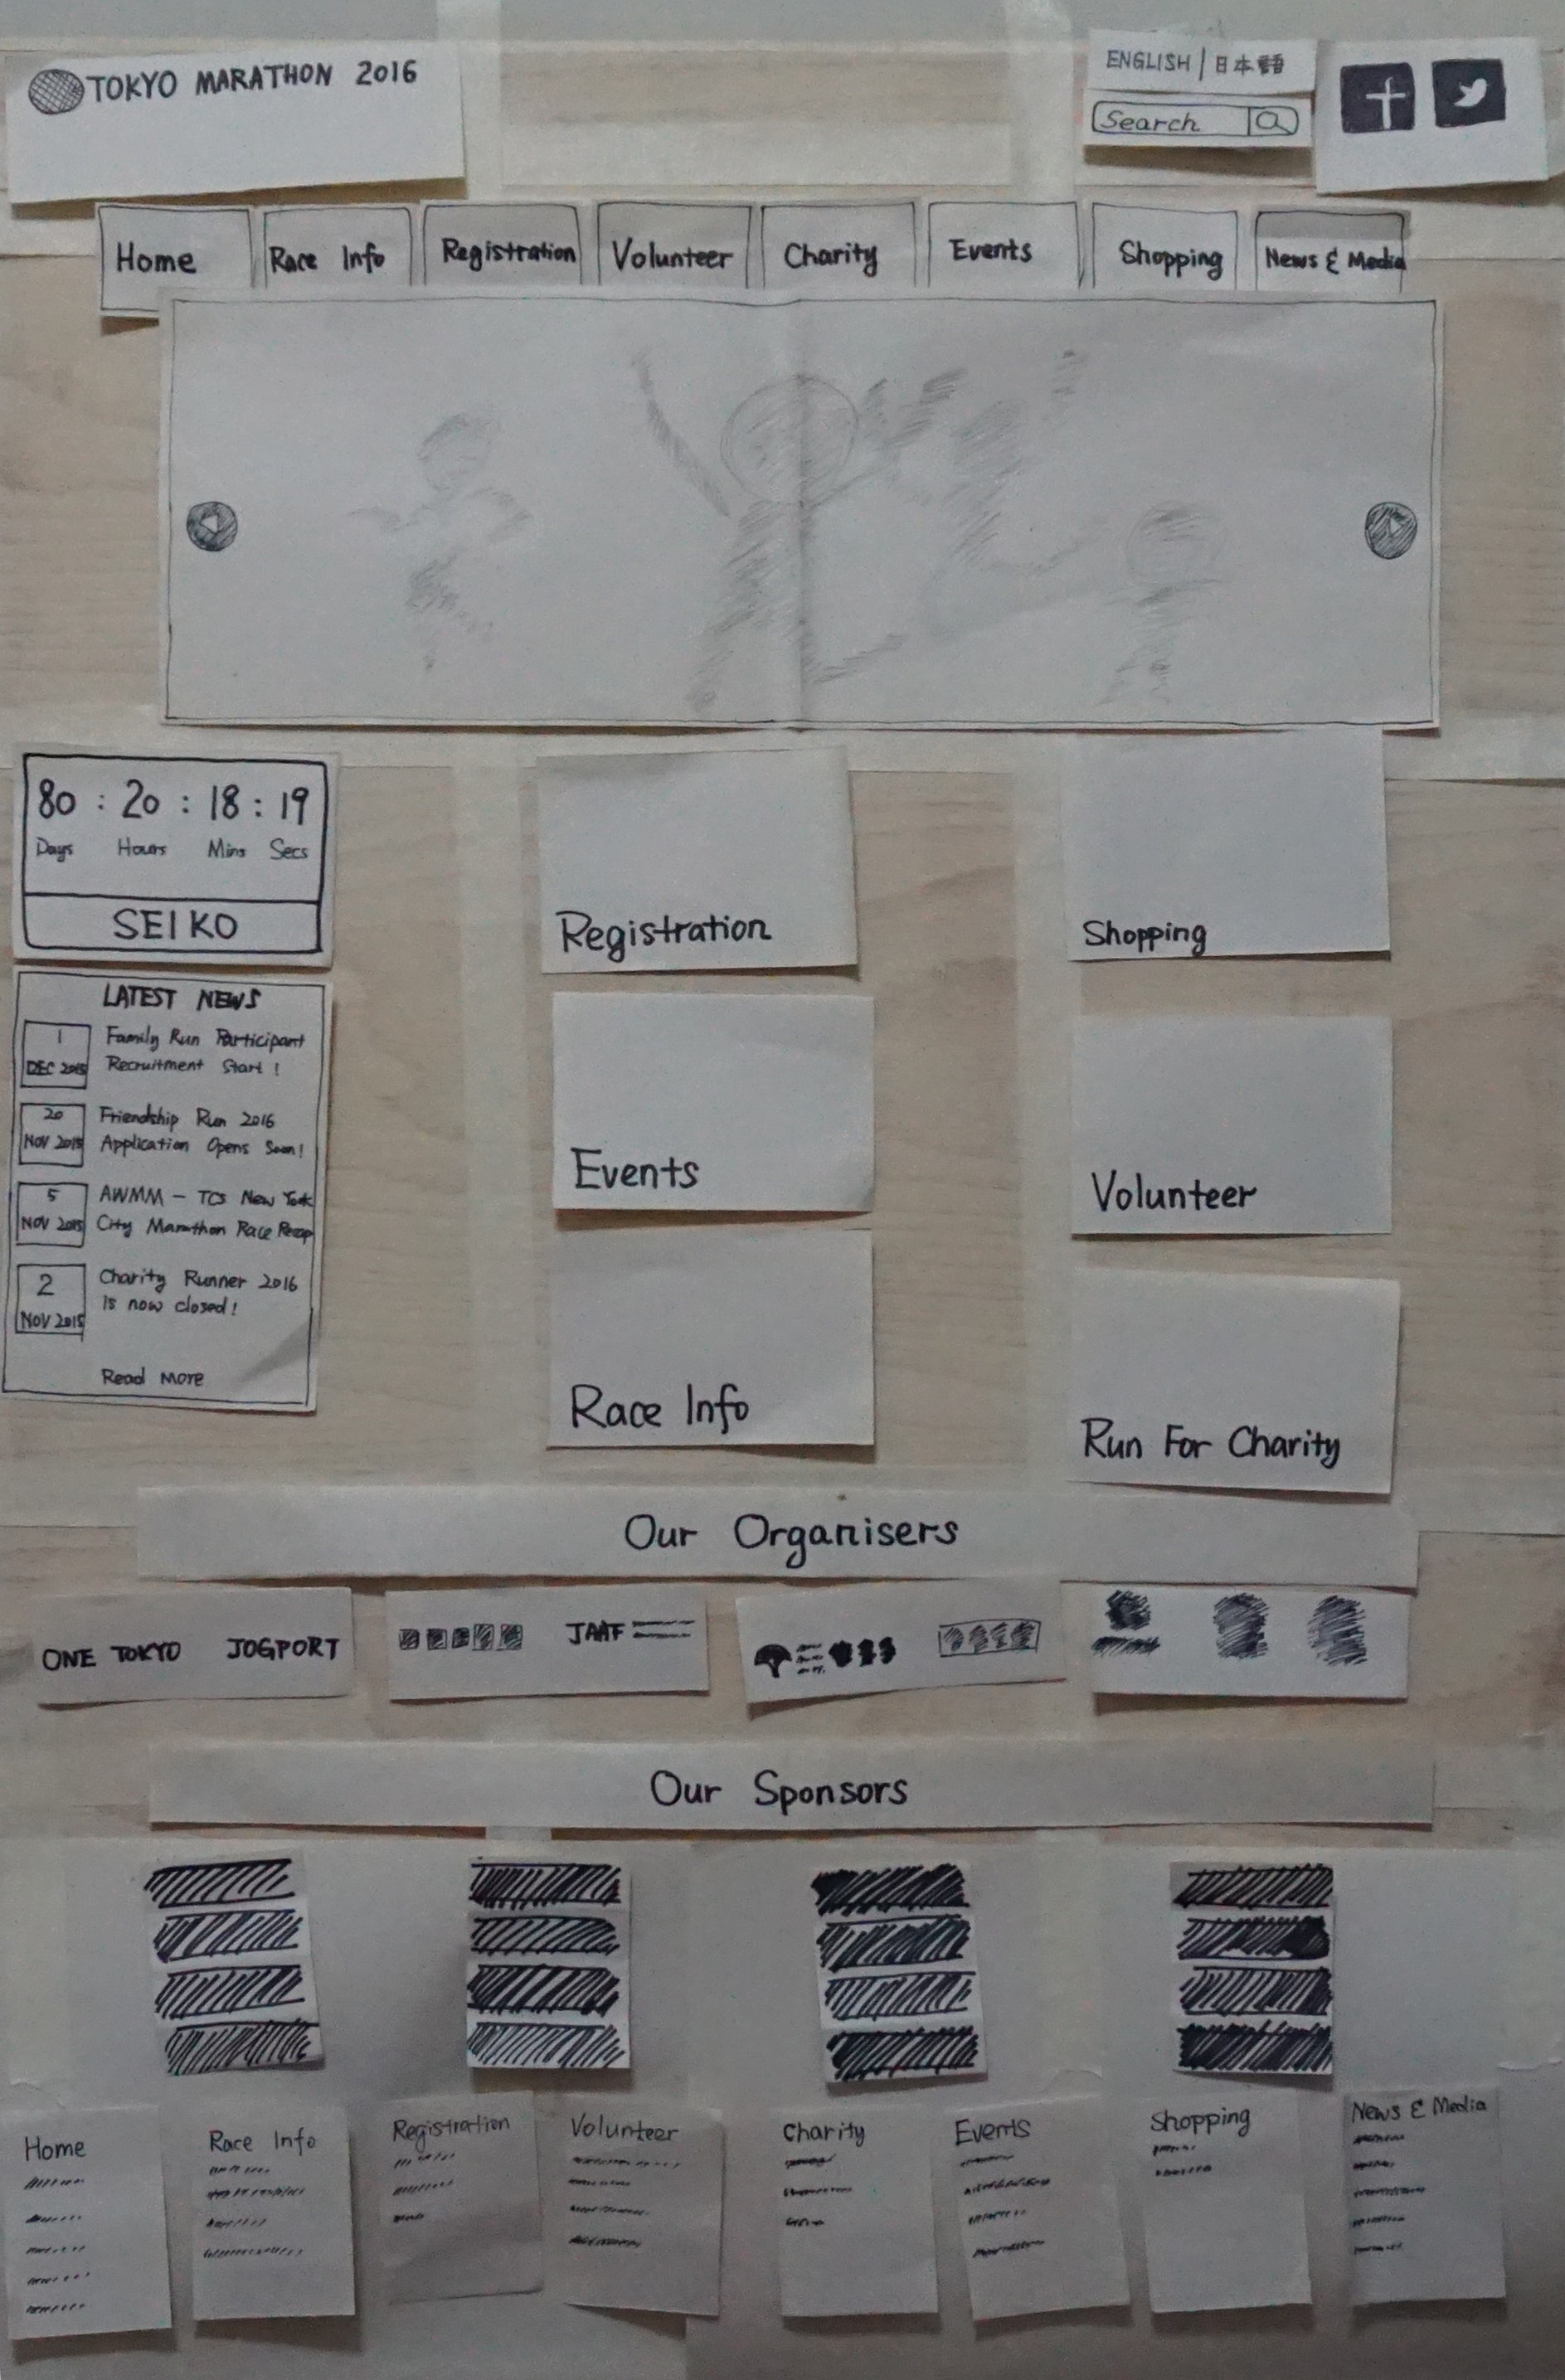 TOKYO MARATHON 2016
ENGLISH | 日本語
Search
Home
Race Info
Registration
Volunteer
Charity
Events
Shopping
News & Media
80 : 20 : 18 : 19
Days Hours Mins Secs
SEIKO
LATEST NEWS
1
DEC 2015
Family Run Participant
Recruitment Start !
20
NOV 2015
Friendship Run 2016
Application Opens Soon!
5
NOV 2015
AWMM - TCS New York
City Marathon Race Recap
2
NOV 2015
Charity Runner 2016
is now closed!
Read More
Registration
Shopping
Events
Volunteer
Race Info
Run For Charity
Our Organisers
ONE TOKYO JOGPORT
JAAF
Our Sponsors
Home
Race Info
Registration
Volunteer
Charity
Events
Shopping
News & Media